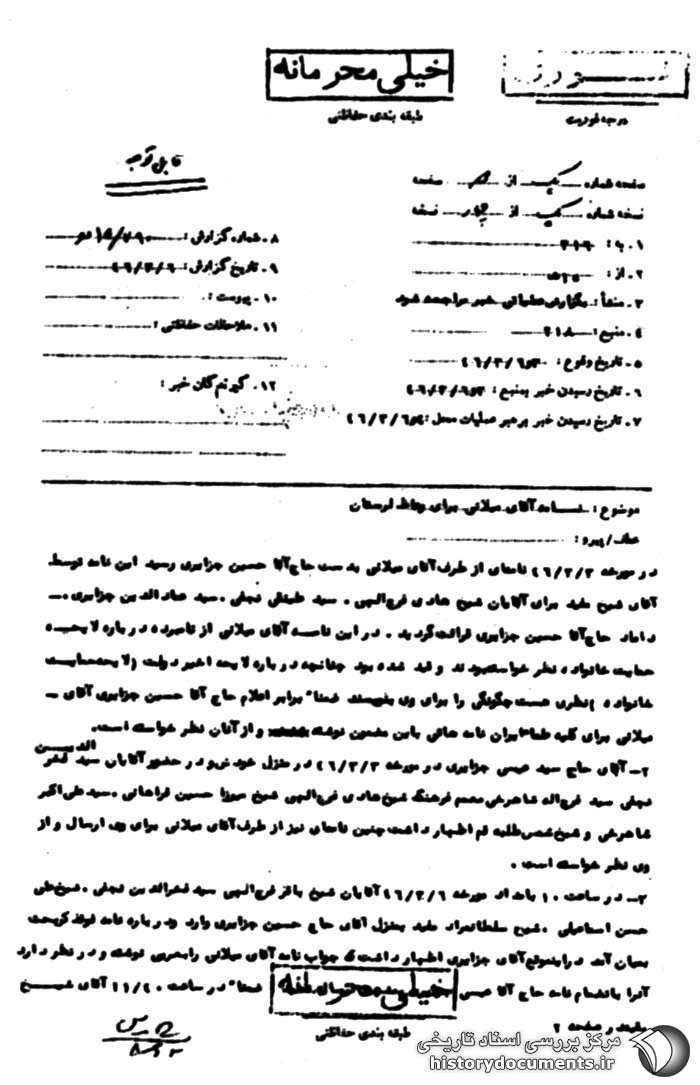 خیلی محرمانه
طبقه بندی حفاظتی
درجه فوریت
قابل توجه
صفحه شماره یک از صفحه
نسخه شماره یک از نسخه
۱ـ به : ۳۱۶
۲ـ از :
۳ـ منشأ : بگزاری عملیاتی خبر مراجعه شود
۴ـ منبع : ۲۱۸۰
۵ـ تاریخ وقوع :
۶ـ تاریخ رسیدن خبر بمنبع :
۷ـ تاریخ رسیدن خبر برهبر عملیات محل :
۸ـ شماره گزارش :
۹ـ تاریخ گزارش : ۴۶/۳/۶
۱۰ـ پیوست :
۱۱ـ ملاحظات حفاظتی :
۱۲ـ گیرندگان خبر :
موضوع : نامه آقای میلانی برای وعاظ لرستان
عطف/پیرو :
در مورخه ۴۶/۳/۳ نامه‌ای از طرف آقای میلانی بدست حاج آقا حسین جزایری رسید این نامه توسط
آقای شیخ مفید برای آقایان شیخ هادی فرج الهی . سید طبنقی نجفی . سید عمادالدین جزایری ـ
داماد حاج آقا حسین جزایری قرائت گردید . در این نامه آقای میلانی از نامبرده درباره لایحه
حمایت خانواده نظر خواسته بودند و قید شده بود چنانچه درباره لایحه اخیر دولت (لایحه حمایت
خانواده ) نظری هست چگونگی را برای وی بنویسند ضمنا" برابر اعلام حاج آقا حسین جزایری آقای ـ
میلانی برای کلیه علماء ایران نامه هائی باین مضمون نوشته و از آنان نظر خواسته است.
۲ـ آقای حاج سید عیسی جزایری در مورخه ۴۶/۳/۳ در منزل خودش و در حضور آقایان سید فخر الدین
نجفی سید فرج اله شاهرخی معمم فرهنگ شیخ هادی فرج الهی شیخ میرزا حسین فراهانی . سید علی اکبر
شاهرخی و شیخ شمس طلبه قم اظهار داشت چنین نامه‌ای نیز از طرف آقای میلانی برای وی ارسال و از
وی نظر خواسته است .
۳ـ در ساعت ۱۰ بامداد مورخه ۴۶/۳/۶ آقایان شیخ باقر فرج الهی سید فخرالدین نجفی . شیخ علی
حسن اسماعیلی . شیخ سلطانمراد مفید بمنزل آقای حاج حسین جزایری وارد و درباره نامه فوق الذکر بحث
بمیان آمد در اینموقع آقای جزایری اظهار داشت که جواب نامه آقای میلانی را بعربی نوشته و در نظر دارد
آنرا بانضمام نامه حاج آقا عیسی ضمنا" در ساعت ۱۱/۴۰ آقای شیخ
بقیه در صفحه ۲
خیلی محرمانه
طبقه بندی حفاظتی
مرکز بررسی اسناد تاریخی
historydocuments.ir